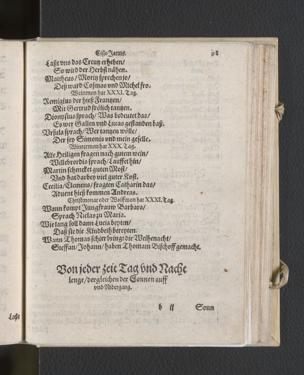 Cisio Janus.
Laßt vns das Creutz erheben/
So wird der Herbst nähen.
Mattheus/ Moritz sprechen je/
Deß ward Cosmas vnd Michel fro.
Weinmon hat XXXI. Tag.
Remigius der hieß Frantzen/
Mit Gertrud frölich tantzen.
Dionysius sprach/ Was bedeutet das/
Es wer Gallen vnd Lucas gestanden baß.
Vrsula sprach/ Wer tantzen wölle/
Der sey Simonis vnd mein geselle.
Wintermon hat XXX. Tag.
Alle Heiligen fragen nach gutem wein/
Willebrordis sprach/ Laufft hin/
Martin schencket guten Most/
Vnd hat darbey viel guter Kost.
Cecilia/ Clemens/ fragten Catharin das/
Aduent hieß kommen Andreas.
Christmonat oder Wolffmon hat XXXI. Tag.
Wann kompt Jungfrauw Barbara/
Sprach Niclas zu Maria.
Wie lang soll dann Lucia beyten/
Daß sie die Kindbeth bereyten.
Wann Thomas schier bringt die Weihenacht/
Steffan/ Johann/ haben Thomam Bischoff gemacht.
Von jeder zeit Tag vnd Nacht
lenge/ vergleichen der Sonnen auff
vnd Nidergang.
b ij Sonn
Laßt